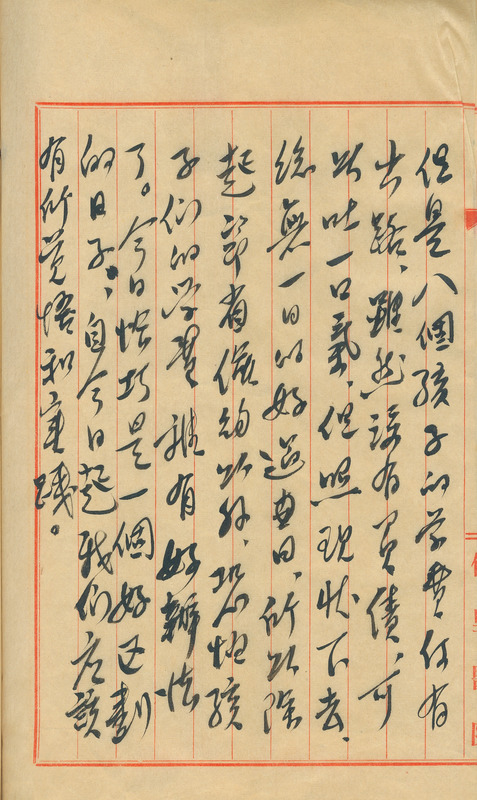 但是八個孩子的学费、仍有
出路、雖然該有負債、可
以吐一口氣、但照現狀下去、
總無一日的好過童日、所以除
起節省儉約以外、恐怕孩
子們的学費難有好辦法
了。今日恰巧是一個好区劃
的日子、自今日起我們应該
有所覚悟和实踐。